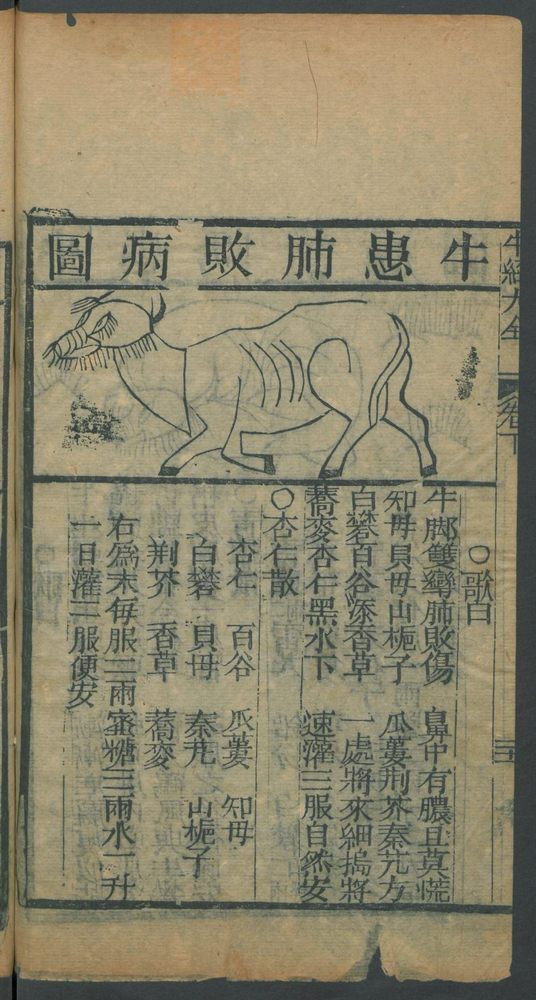 牛經大全
卷下
牛患肺敗病圖
○歌曰
牛脚雙彎肺敗傷　鼻中有膿且莫慌
知母貝母山梔子　瓜蔞荆芥秦艽方
白礬百谷添香草　一處將來細搗將
蕎麥杏仁黑水下　速灌三服自然安
○杏仁散
杏仁　百谷　瓜蔞　知母
白礬　貝母　秦艽　山梔子
荆芥　香草　蕎麥
右爲末每服二兩蜜糖三兩水二升
一日灌二服便安